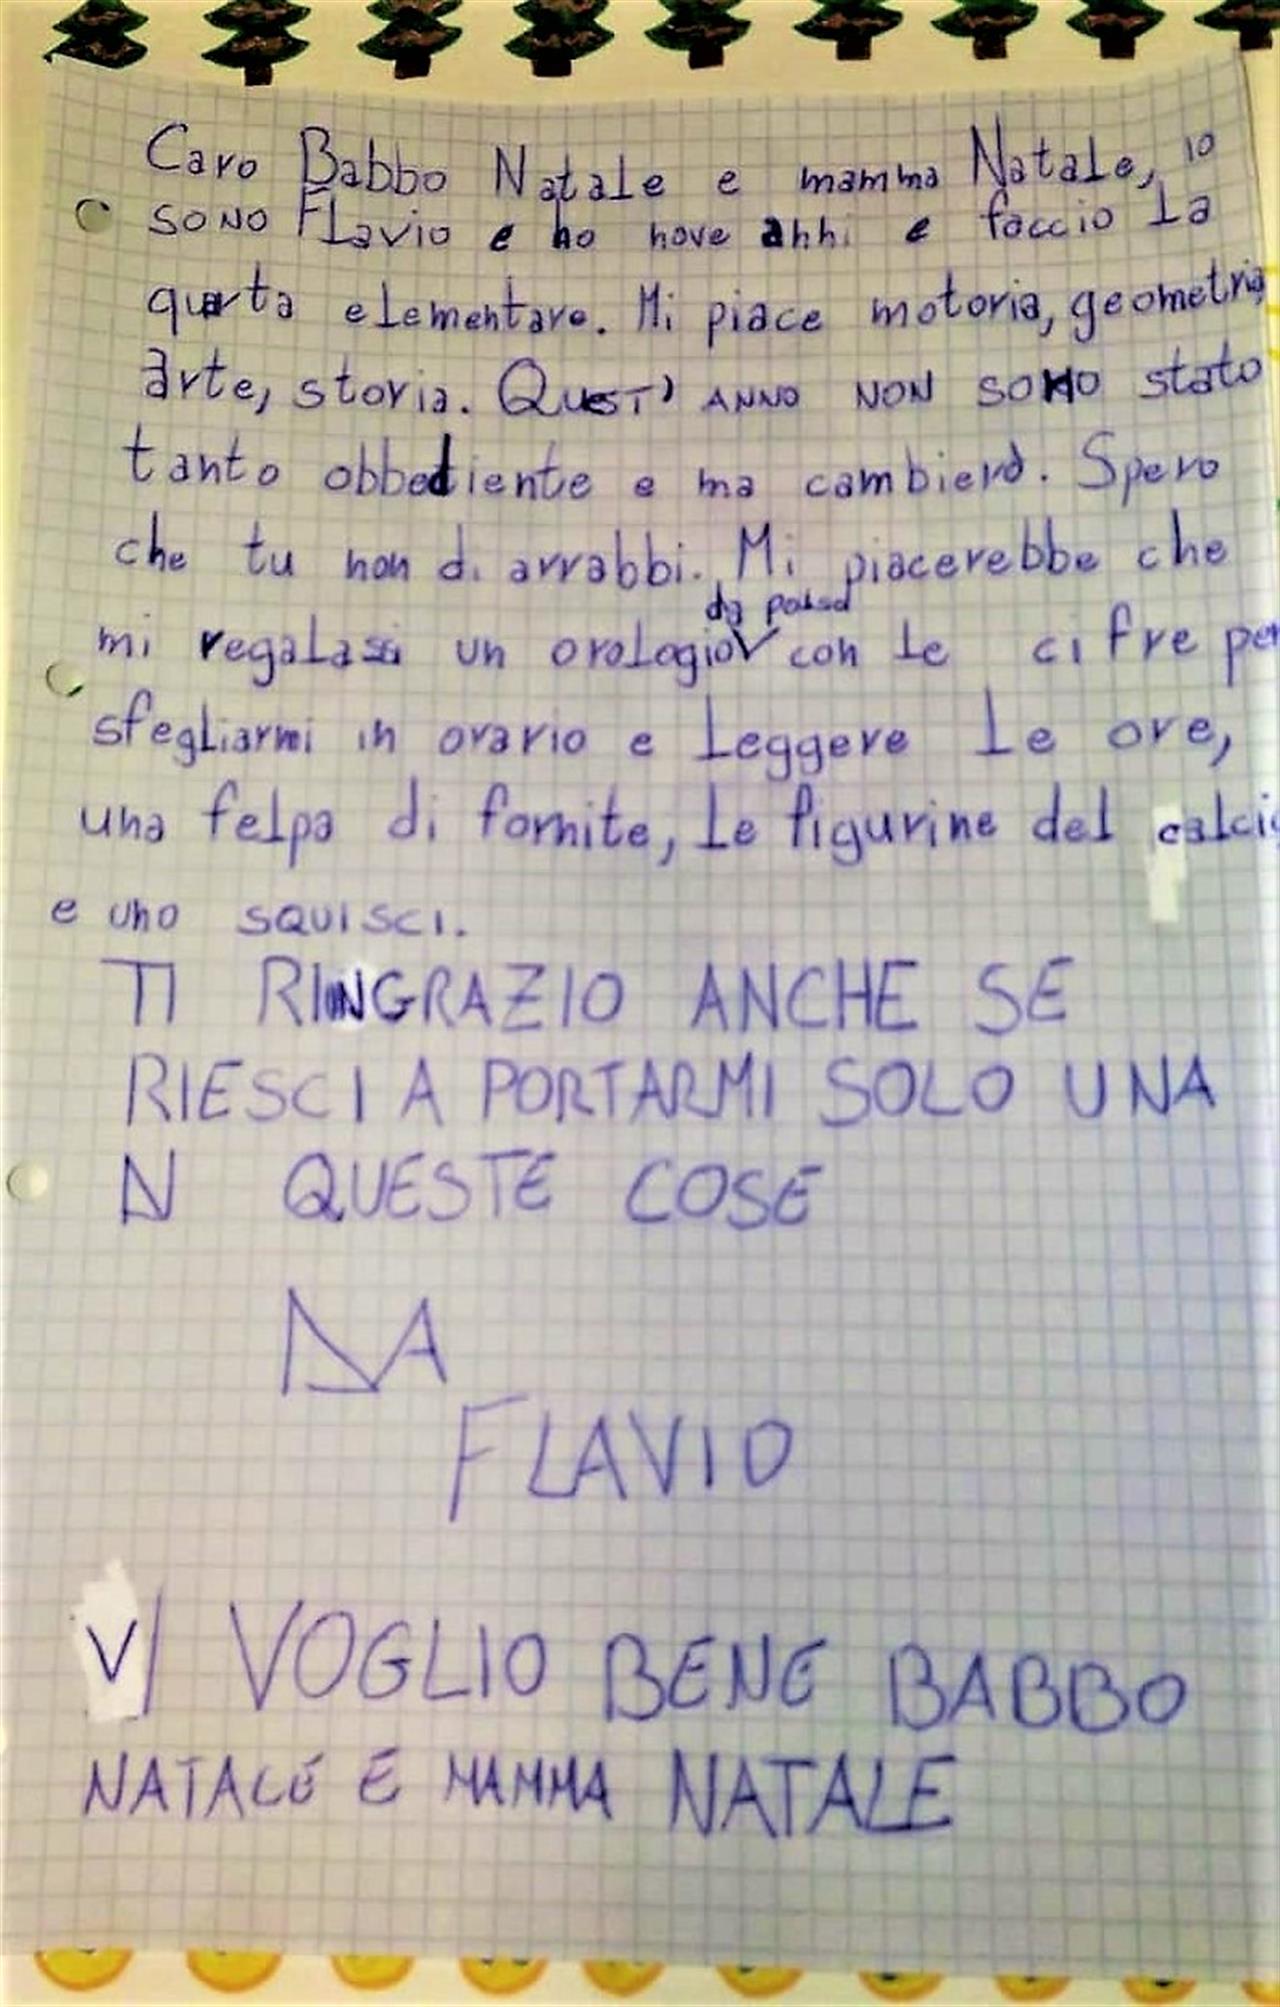 Caro Babbo Natale e mamma Natale, io
SONO Flavio e ho nove anni e faccio la
quarta elementare. Mi piace motoria, geometria
arte, storia. QUEST' ANNO NON SONO stato
tanto obbediente e ma cambierò. Spero
che tu non di arrabbi. Mi piacerebbe che
da polso
mi regalassi un orologio con le cifre per
sfegliarmi in orario e leggere le ore,
una felpa di fornite, le figurine del calcio
e uno SQUISCI.
TI RINGRAZIO ANCHE SE
RIESCI A PORTARMI SOLO UNA
N QUESTE COSE
DA
FLAVIO
VI VOGLIO BENE BABBO
NATALE E MAMMA NATALE